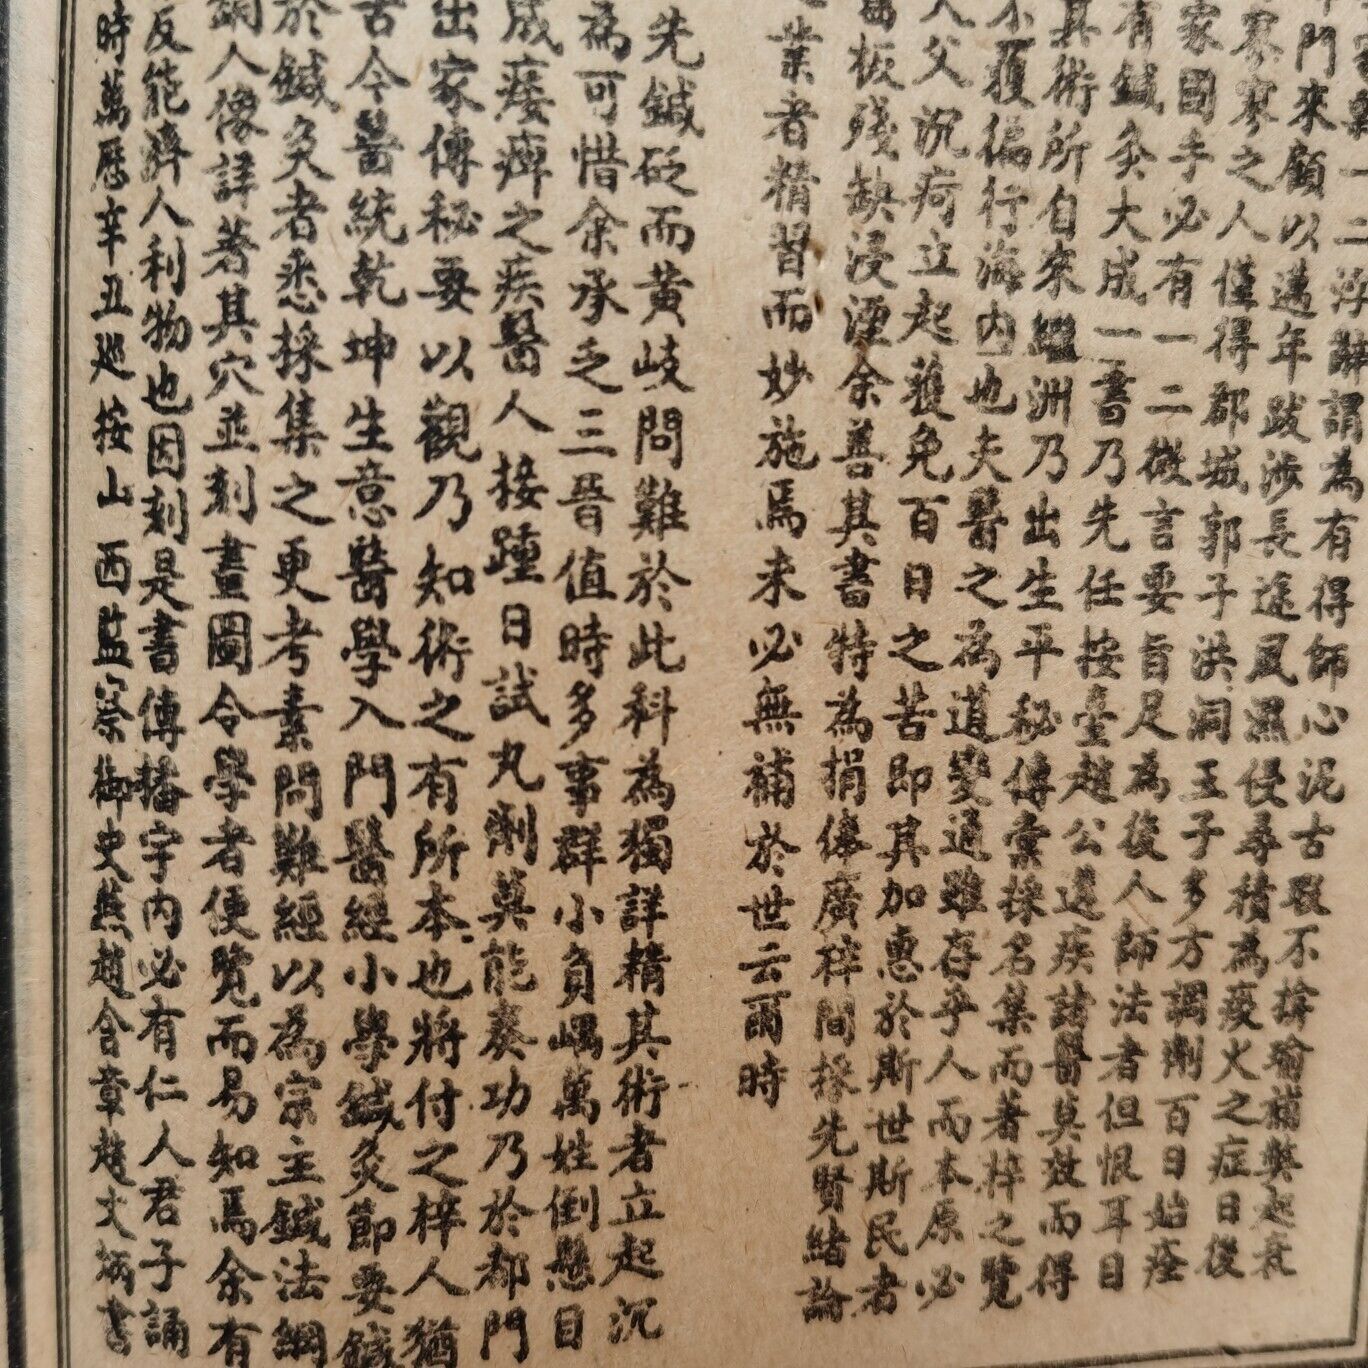 浮辭謂為有得師心泥古瑕不揜瑜補弊起衰
門來顧以邁年跋涉長途風濕侵尋積為痰火之症日後
寒寒之人僅得郡城郭子洪洞王子多方調劑百日始痊
家國手必有一二微言要旨足為後人師法者但恨耳目
有鍼灸大成一書乃先任按臺趙公遘疾諸醫莫效而得
其術所自來繼洲乃出生平秘傳彙採名集而著梓之覽
不覆徧行海內也夫醫之為道變通雖存乎人而本原必
人父沉疴立起獲免百日之苦即其加惠於斯世斯民者
板殘缺浸湮余善其書特為捐俸廣梓間採先賢緒論
業者精習而妙施焉未必無補於世云爾時
先鍼砭而黃岐問難於此科為獨詳精其術者立起沉
為可惜余承乏三晉值時多事群小負嵎萬姓倒懸目
成痿痺之疾醫人接踵日試丸劑莫能奏功乃於都門
出家傳秘要以觀乃知術之有所本也將付之梓人猶
古今醫統乾坤生意醫學入門醫經小學鍼灸節要鍼
於鍼灸者悉採集之更考素問難經以為宗主鍼法綱
銅人像詳著其穴並刻畫圖令學者便覽而易知焉余有
反能濟人利物也因刻是書傳播宇內必有仁人君子誦
時萬歷辛丑巡按山西監察御史燕趙含章趙文炳書